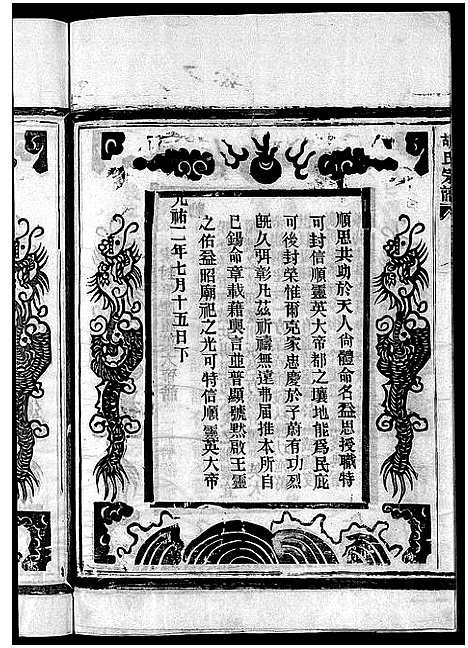 胡氏宗譜
順思共助於天人尙體命名益思授職特
可封信順靈英大帝都之壤地能爲民庇
可後封榮惟爾克家忠慶於子蔚有功烈
旣久弭彰凡茲祈禱無違弗屆推本所自
已錫命章載藉輿言並普顯號黙啟王靈
之佑益昭廟祀之光可特信順靈英大帝
元祐二年七月十五日下